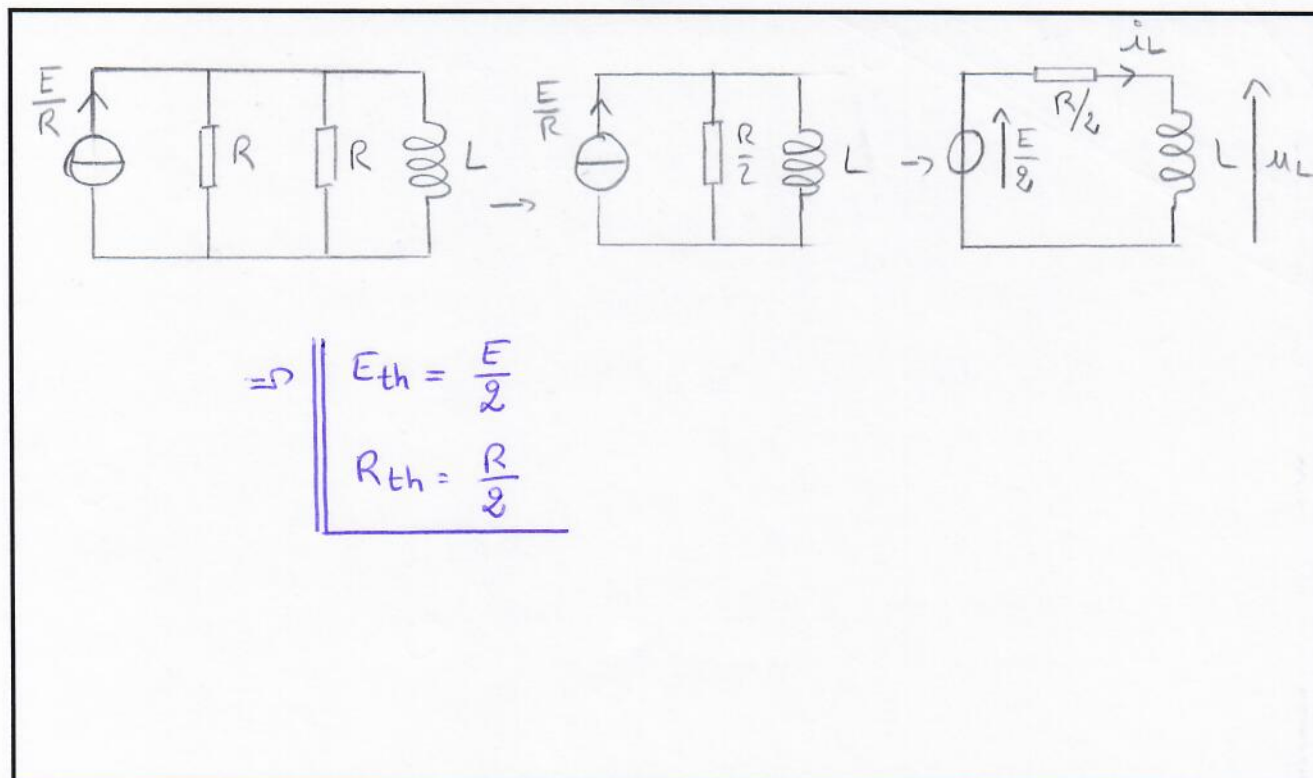 E/R R R L → E/R R/2 L → E/2 R/2 i_L L u_L
⇒ E_th = E/2
R_th = R/2